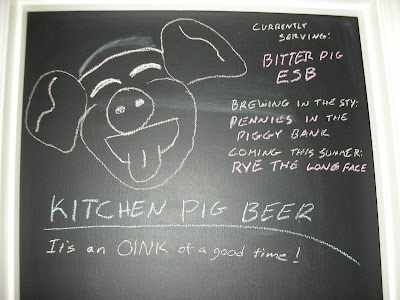 CURRENTLY
SERVING:
BITTER PIG
ESB
BREWING IN THE STY:
PENNIES IN THE
PIGGY BANK
COMING THIS SUMMER:
RYE THE LONG FACE
KITCHEN PIG BEER
It's an OINK of a good time!